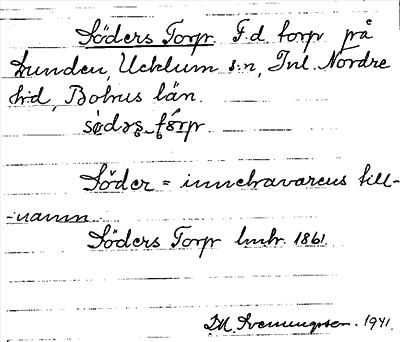 Söders Torp. F.d. torp på
Lunden, Ucklum s:n, Inl. Nordre
hd, Bohus län.
Söder = innehavarens till-
-namn.
Söders Torp hmfr. 1861
D.M. Svenningsson. 1941.